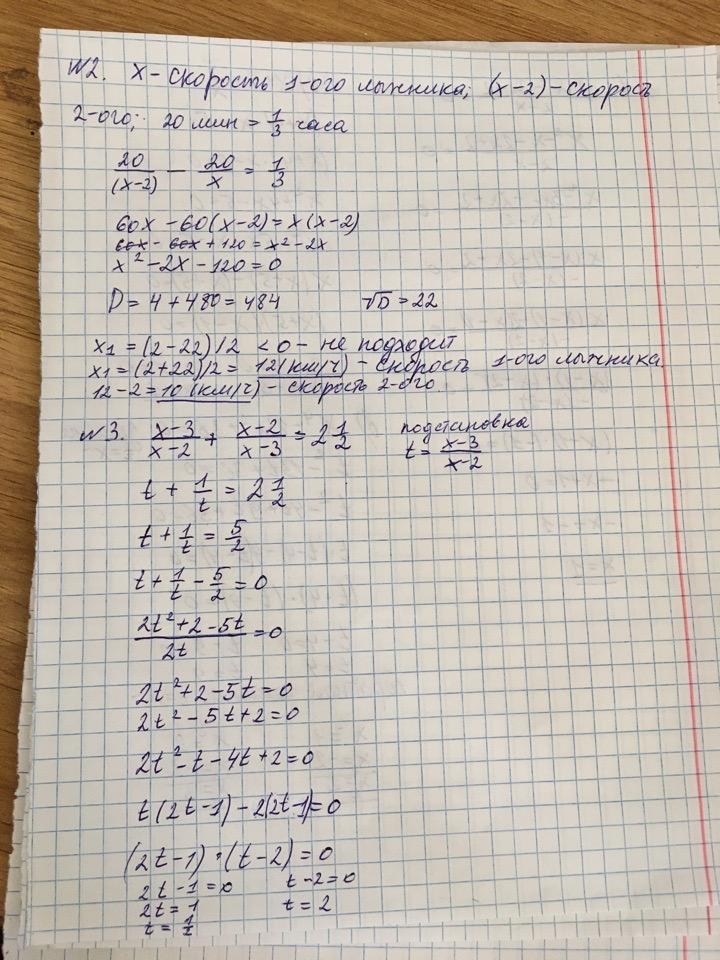 №2. x – скорость 1-ого лыжника; (x-2) – скорость
2-ого; 20 мин = 1/3 часа
20/(x-2) - 20/x = 1/3
60x - 60(x-2) = x(x-2)
60x - 60x + 120 = x² - 2x
x² - 2x - 120 = 0
D = 4 + 480 = 484 √D = 22
x₁ = (2-22)/2 < 0 – не подходит
x₁ = (2+22)/2 = 12(км/ч) – скорость 1-ого лыжника.
12-2 = 10 (км/ч) – скорость 2-ого.
№3. (x-3)/(x-2) + (x-2)/(x-3) = 2 1/2 подстановка
t = (x-3)/(x-2)
t + 1/t = 2 1/2
t + 1/t = 5/2
t + 1/t - 5/2 = 0
(2t² + 2 - 5t)/2t = 0
2t² + 2 - 5t = 0
2t² - 5t + 2 = 0
2t² - t - 4t + 2 = 0
t(2t-1) - 2(2t-1) = 0
(2t-1)·(t-2) = 0
2t - 1 = 0 t - 2 = 0
2t = 1 t = 2